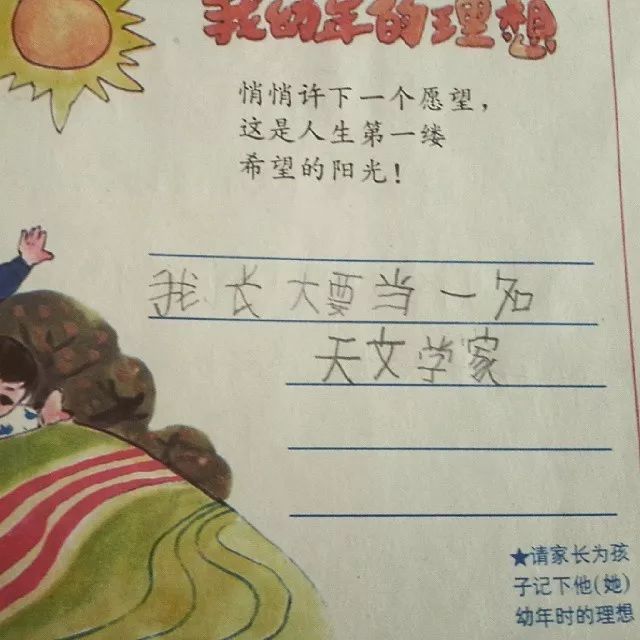 我幼年的理想
悄悄许下一个愿望，
这是人生第一缕
希望的阳光！
我长大要当一名
天文学家
★请家长为孩
子记下他(她)
幼年时的理想